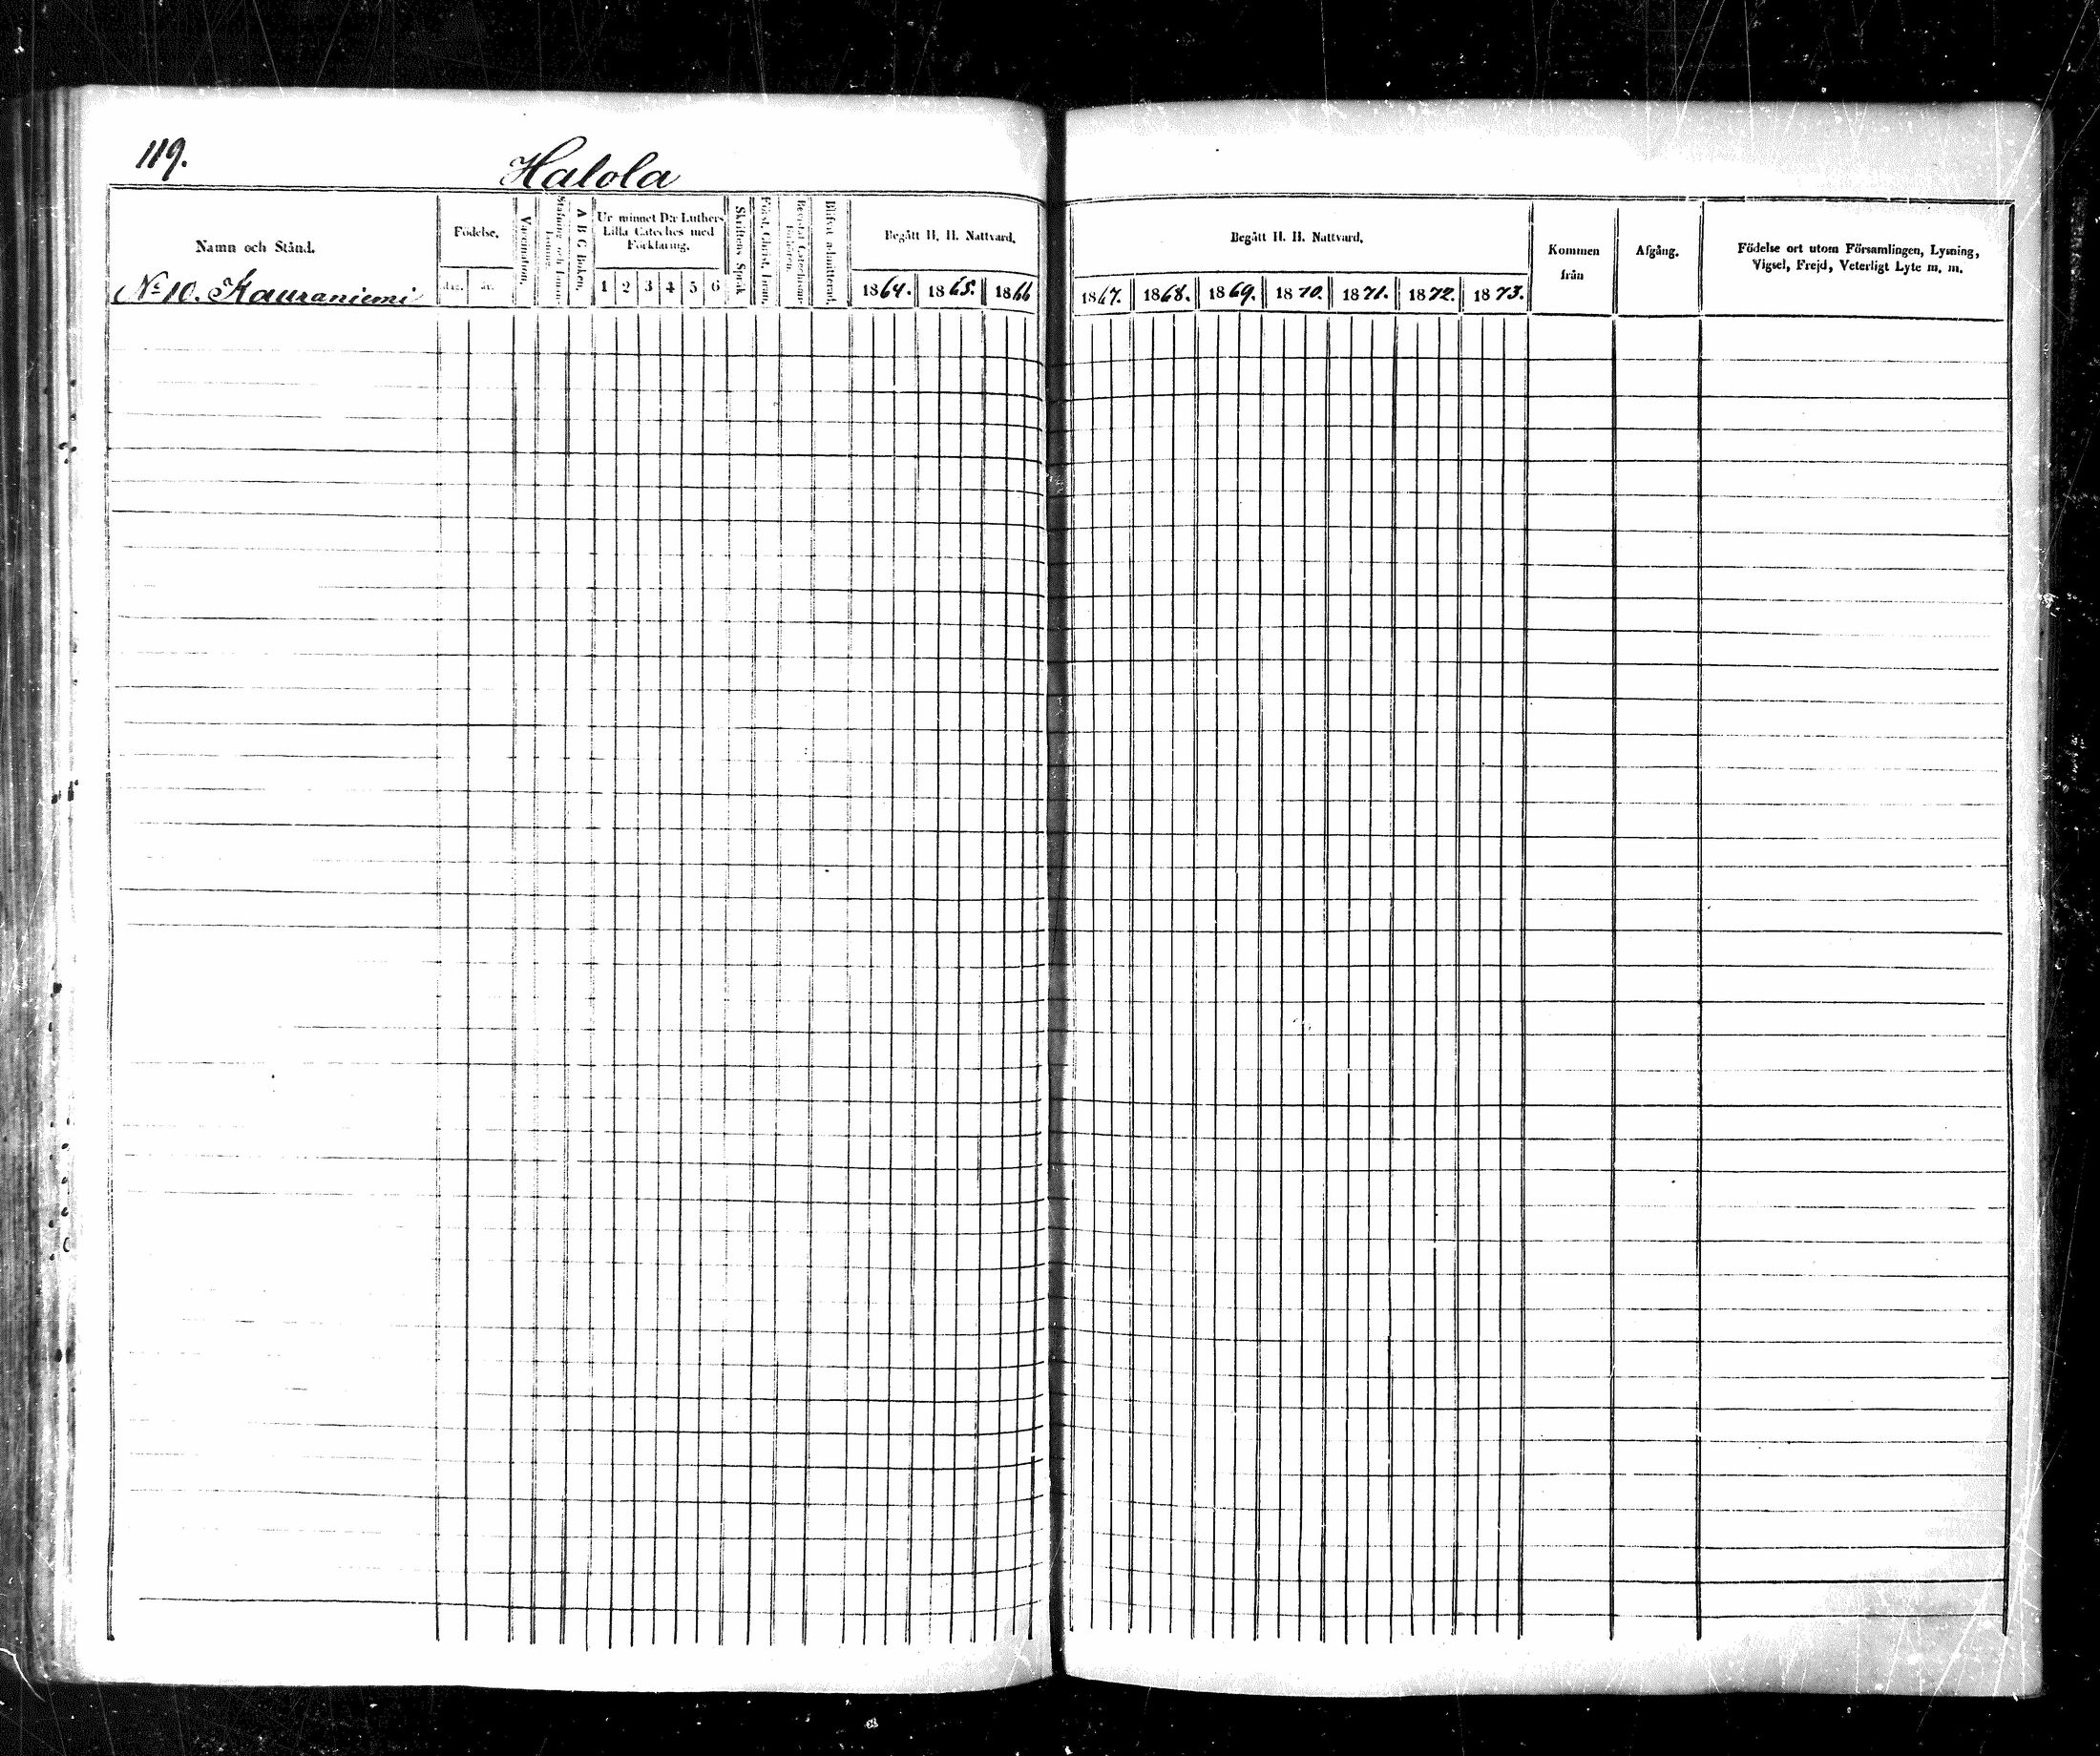 119.
Halola
Namn och Stånd.
No 10. Kauraniemi
Födelse.
dag. år.
Vaccination.
Stafning och Innanläsning.
A B C Boken.
Ur minnet D:r Luthers
Lilla Cateches med
Förklaring.
1 2 3 4 5 6
Skriftens Språk
Först. Christ. Läran.
Bevistat Catechismi-
förhören.
Blifvit admitterad.
Begått H. H. Nattvard.
1864. 1865. 1866
Begått H. H. Nattvard.
1867. 1868. 1869. 1870. 1871. 1872. 1873.
Kommen
från
Afgång.
Födelse ort utom Församlingen, Lysning,
Vigsel, Frejd, Veterligt Lyte m. m.